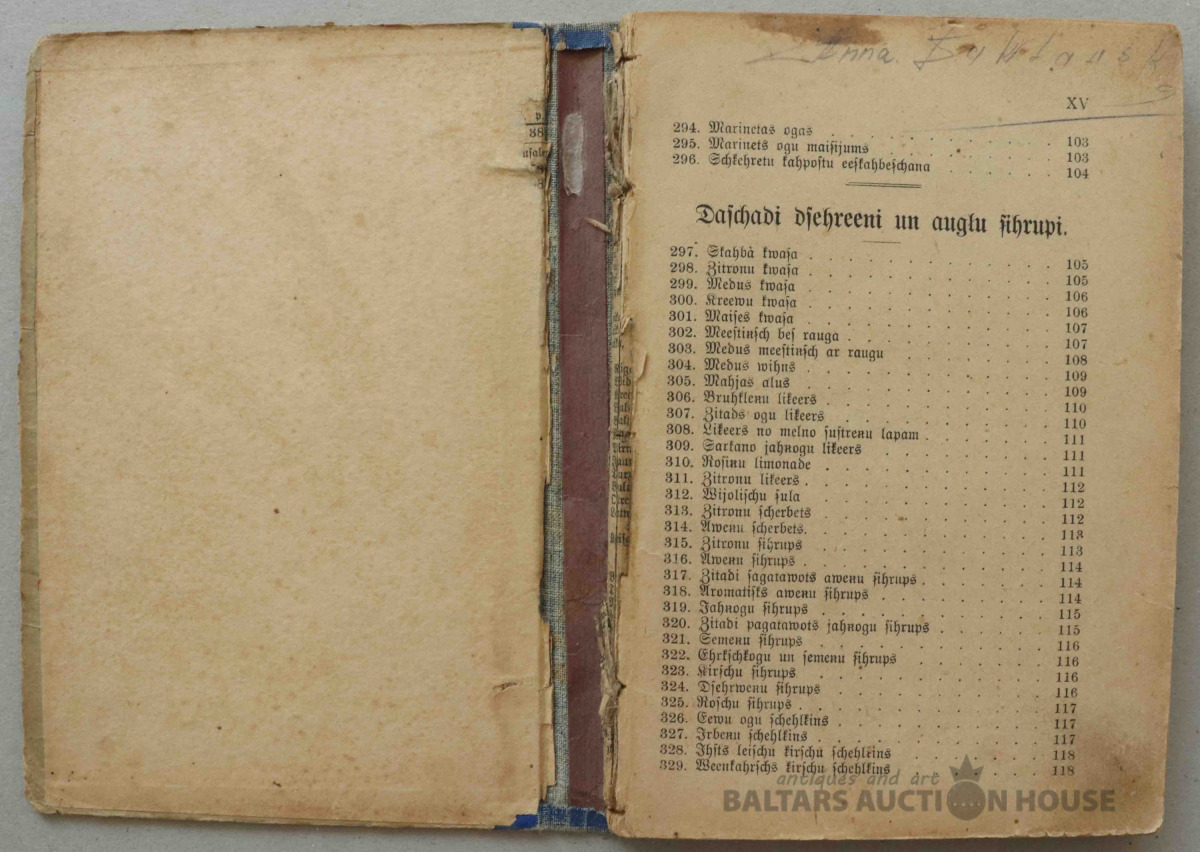 Anna
XV
294. Marinetas ogas 103
295. Marinets ogu maisijums 103
296. Schkehretu kahpostu eeskahbeschana 104
Daschadi dsehreeni un augļu sihrupi.
297. Skahbà kwasa 105
298. Zitronu kwasa 105
299. Medus kwasa 106
300. Kreewu kwasa 106
301. Maises kwasa 107
302. Meestiņsch bes rauga 107
303. Medus meestiņsch ar raugu 108
304. Medus wihns 109
305. Mahjas alus 109
306. Bruhklenu likeers 110
307. Zitads ogu likeers 110
308. Likeers no melno sustrenu lapam 111
309. Sarkano jahņogu likeers 111
310. Rosiņu limonade 111
311. Zitronu likeers 112
312. Wijolischu sula 112
313. Zitronu scherbets 112
314. Aweņu scherbets. 113
315. Zitronu sihrups 113
316. Aweņu sihrups 114
317. Zitadi sagatawots aweņu sihrups 114
318. Aromatisks aweņu sihrups 114
319. Jahņogu sihrups 115
320. Zitadi pagatawots jahņogu sihrups 115
321. Semeņu sihrups 116
322. Ehrkschkogu un semeņu sihrups 116
323. Kirschu sihrups 116
324. Dsehrweņu sihrups 116
325. Roschu sihrups 117
326. Eewu ogu schehlkins 117
327. Irbenu schehlkins 117
328. Ihsts leischu kirschu schehlkins 118
329. Weenkahrschs kirschu schehlkins 118
antiques and art
BALTARS AUCTION HOUSE